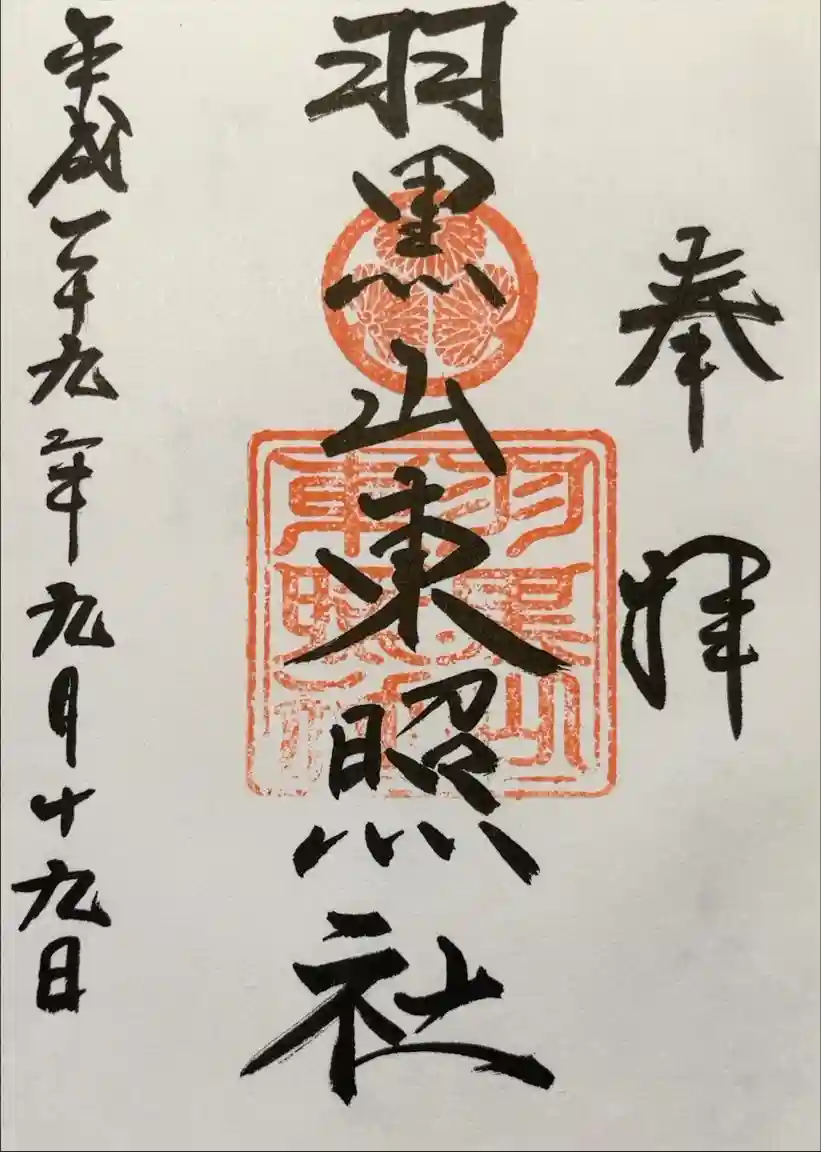 奉拝
羽黒山東照社
平成二十九年九月十九日
羽黒山
東照社